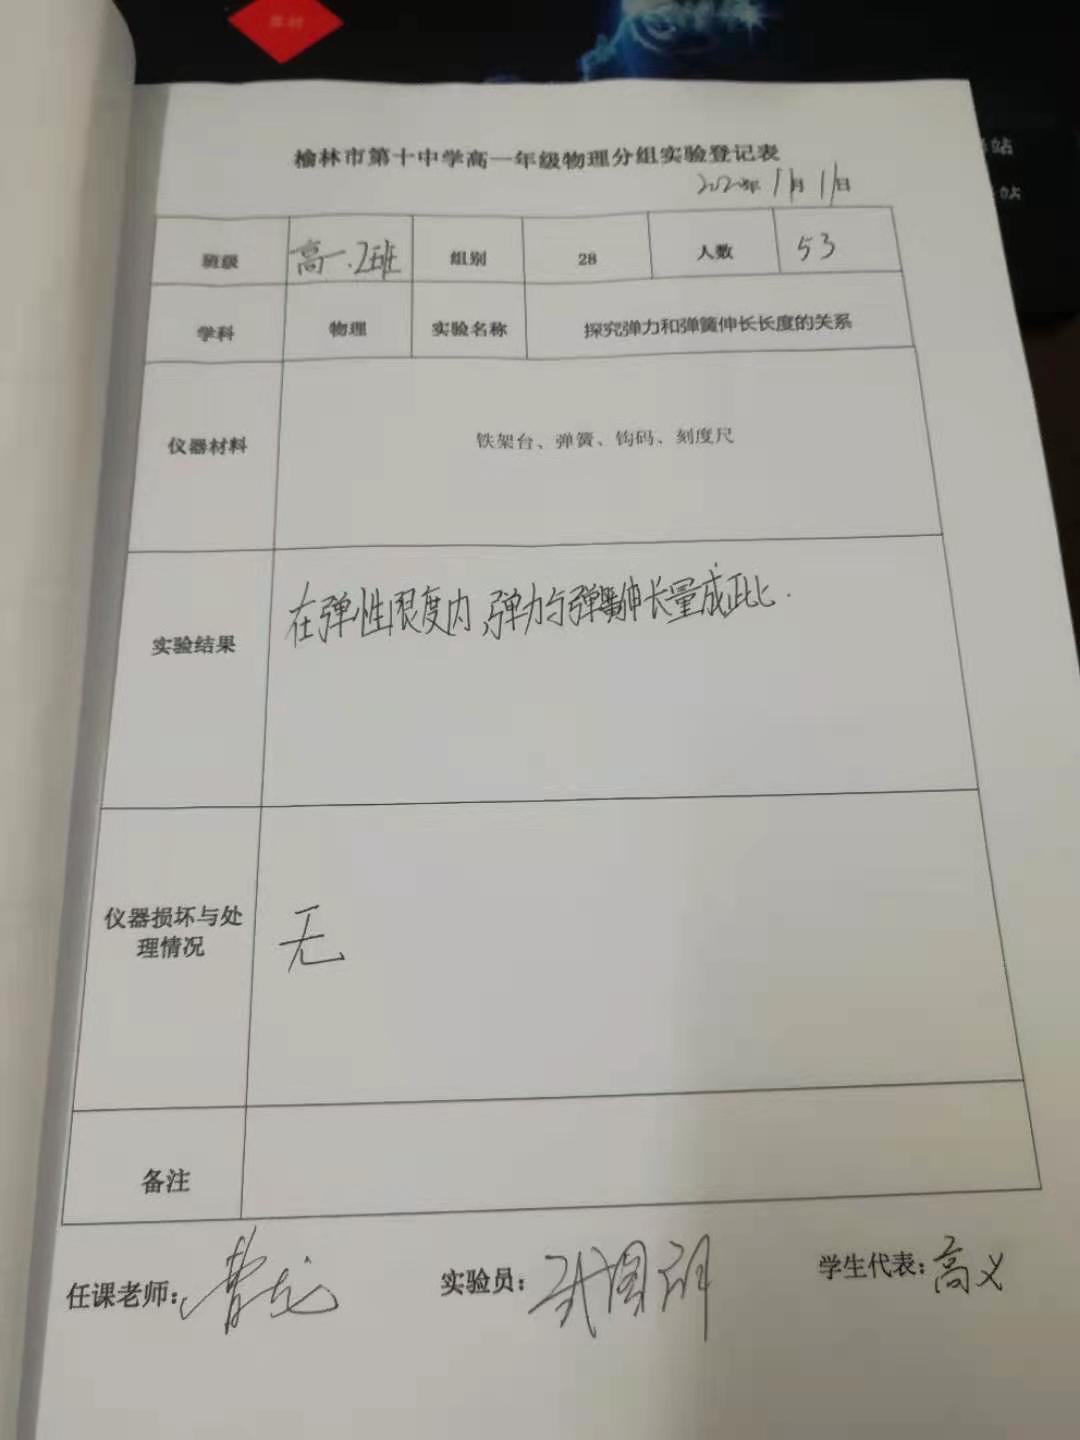 榆林市第十中学高一年级物理分组实验登记表
2020年11月11日
班级 高一.2班 组别 28 人数 53
学科 物理 实验名称 探究弹力和弹簧伸长长度的关系
仪器材料 铁架台、弹簧、钩码、刻度尺
实验结果 在弹性限度内,弹力与弹簧伸长量成正比.
仪器损坏与处
理情况
无
备注
任课老师: 实验员: 学生代表:高义
站
站